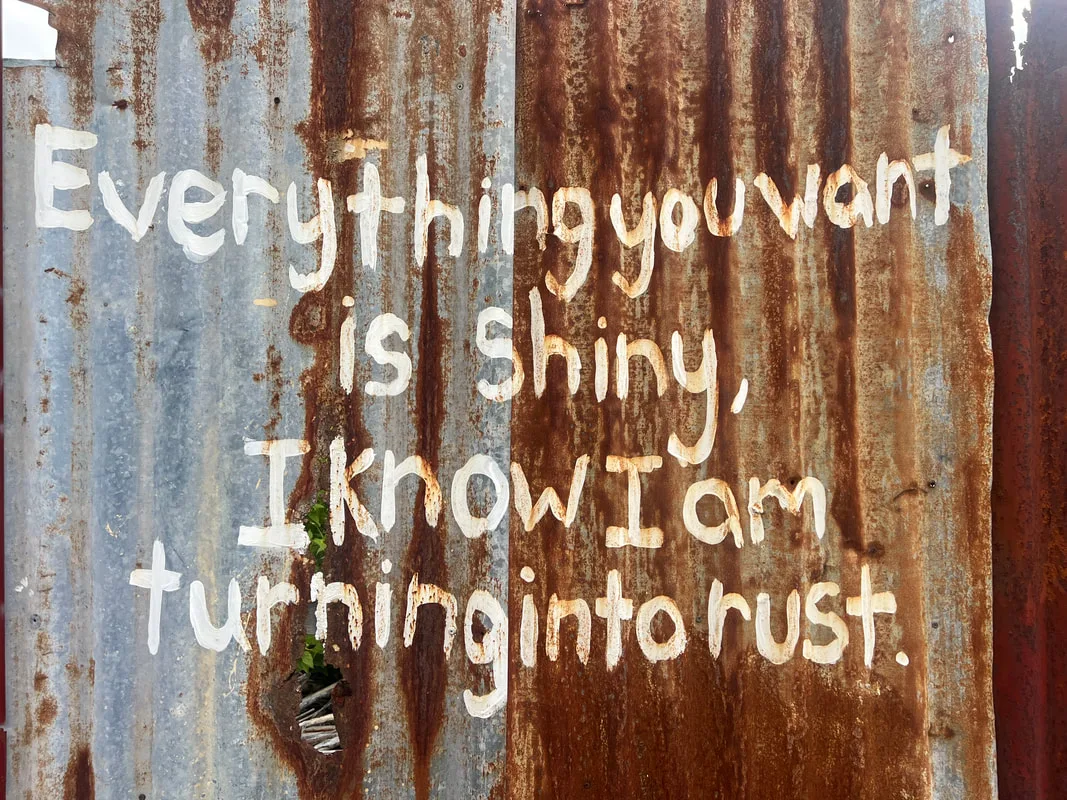 Everything you want
is shiny,
I know I am
turning into rust.